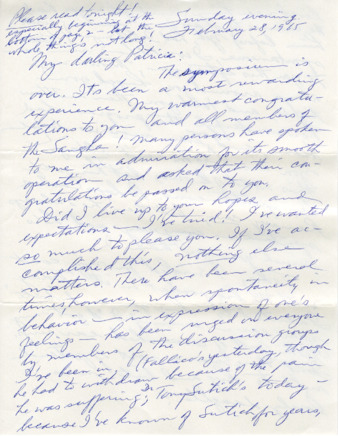 Please read tonight!
especially beginning at the
bottom of pg. 2 - but the
whole thing's not long!
Sunday evening
February 28, 1965
My darling Patricia:
The symposium is
over. It's been a most rewarding
experience. My warmest congratu-
lations to you and all members of
the Sangha! Many persons have spoken
to me in admiration for its smooth
operation and asked that their con-
gratulations be passed on to you.
Did I live up to your hopes and
expectations — I've tried! I've wanted
so much to please you. If I've ac-
complished this, nothing else
matters. There have been several
times, however, when spontaneity in
behavior — in expression of one's
feelings — has been urged on everyone
by members of the discussion groups
I've been in, (Fallico's yesterday, though
he had to withdraw because of the pain
he was suffering; Dr. Tony Sutich's today —
because I've known of Sutich for years,